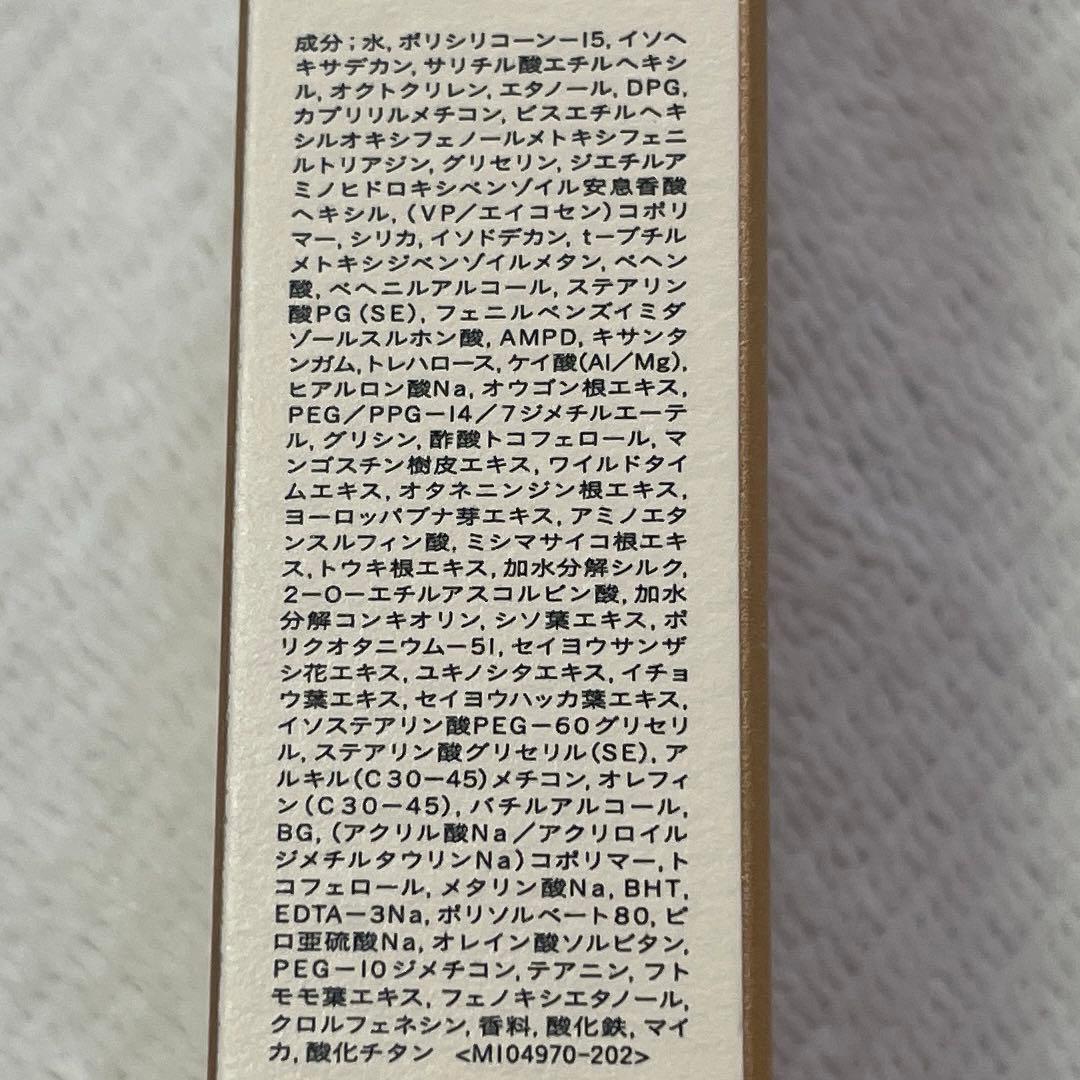 成分；水, ポリシリコーン－15, イソヘ
キサデカン, サリチル酸エチルヘキシ
ル, オクトクリレン, エタノール, DPG,
カプリリルメチコン, ビスエチルヘキ
シルオキシフェノールメトキシフェニ
ルトリアジン, グリセリン, ジエチルア
ミノヒドロキシベンゾイル安息香酸
ヘキシル, (VP／エイコセン)コポリ
マー, シリカ, イソドデカン, t－ブチル
メトキシジベンゾイルメタン, ベヘン
酸, ベヘニルアルコール, ステアリン
酸PG(SE), フェニルベンズイミダ
ゾールスルホン酸, AMPD, キサンタ
ンガム, トレハロース, ケイ酸(Al／Mg),
ヒアルロン酸Na, オウゴン根エキス,
PEG／PPG－14／7ジメチルエーテ
ル, グリシン, 酢酸トコフェロール, マ
ンゴスチン樹皮エキス, ワイルドタイ
ムエキス, オタネニンジン根エキス,
ヨーロッパブナ芽エキス, アミノエタ
ンスルフィン酸, ミシマサイコ根エキ
ス, トウキ根エキス, 加水分解シルク,
2－O－エチルアスコルビン酸, 加水
分解コンキオリン, シソ葉エキス, ポ
リクオタニウム－51, セイヨウサンザ
シ花エキス, ユキノシタエキス, イチョ
ウ葉エキス, セイヨウハッカ葉エキス,
イソステアリン酸PEG－60グリセリ
ル, ステアリン酸グリセリル(SE), ア
ルキル(C30－45)メチコン, オレフィ
ン(C30－45), バチルアルコール,
BG, (アクリル酸Na／アクリロイル
ジメチルタウリンNa)コポリマー, ト
コフェロール, メタリン酸Na, BHT,
EDTA－3Na, ポリソルベート80, ピ
ロ亜硫酸Na, オレイン酸ソルビタン,
PEG－10ジメチコン, テアニン, フト
モモ葉エキス, フェノキシエタノール,
クロルフェネシン, 香料, 酸化鉄, マイ
カ, 酸化チタン <MI04970-202>